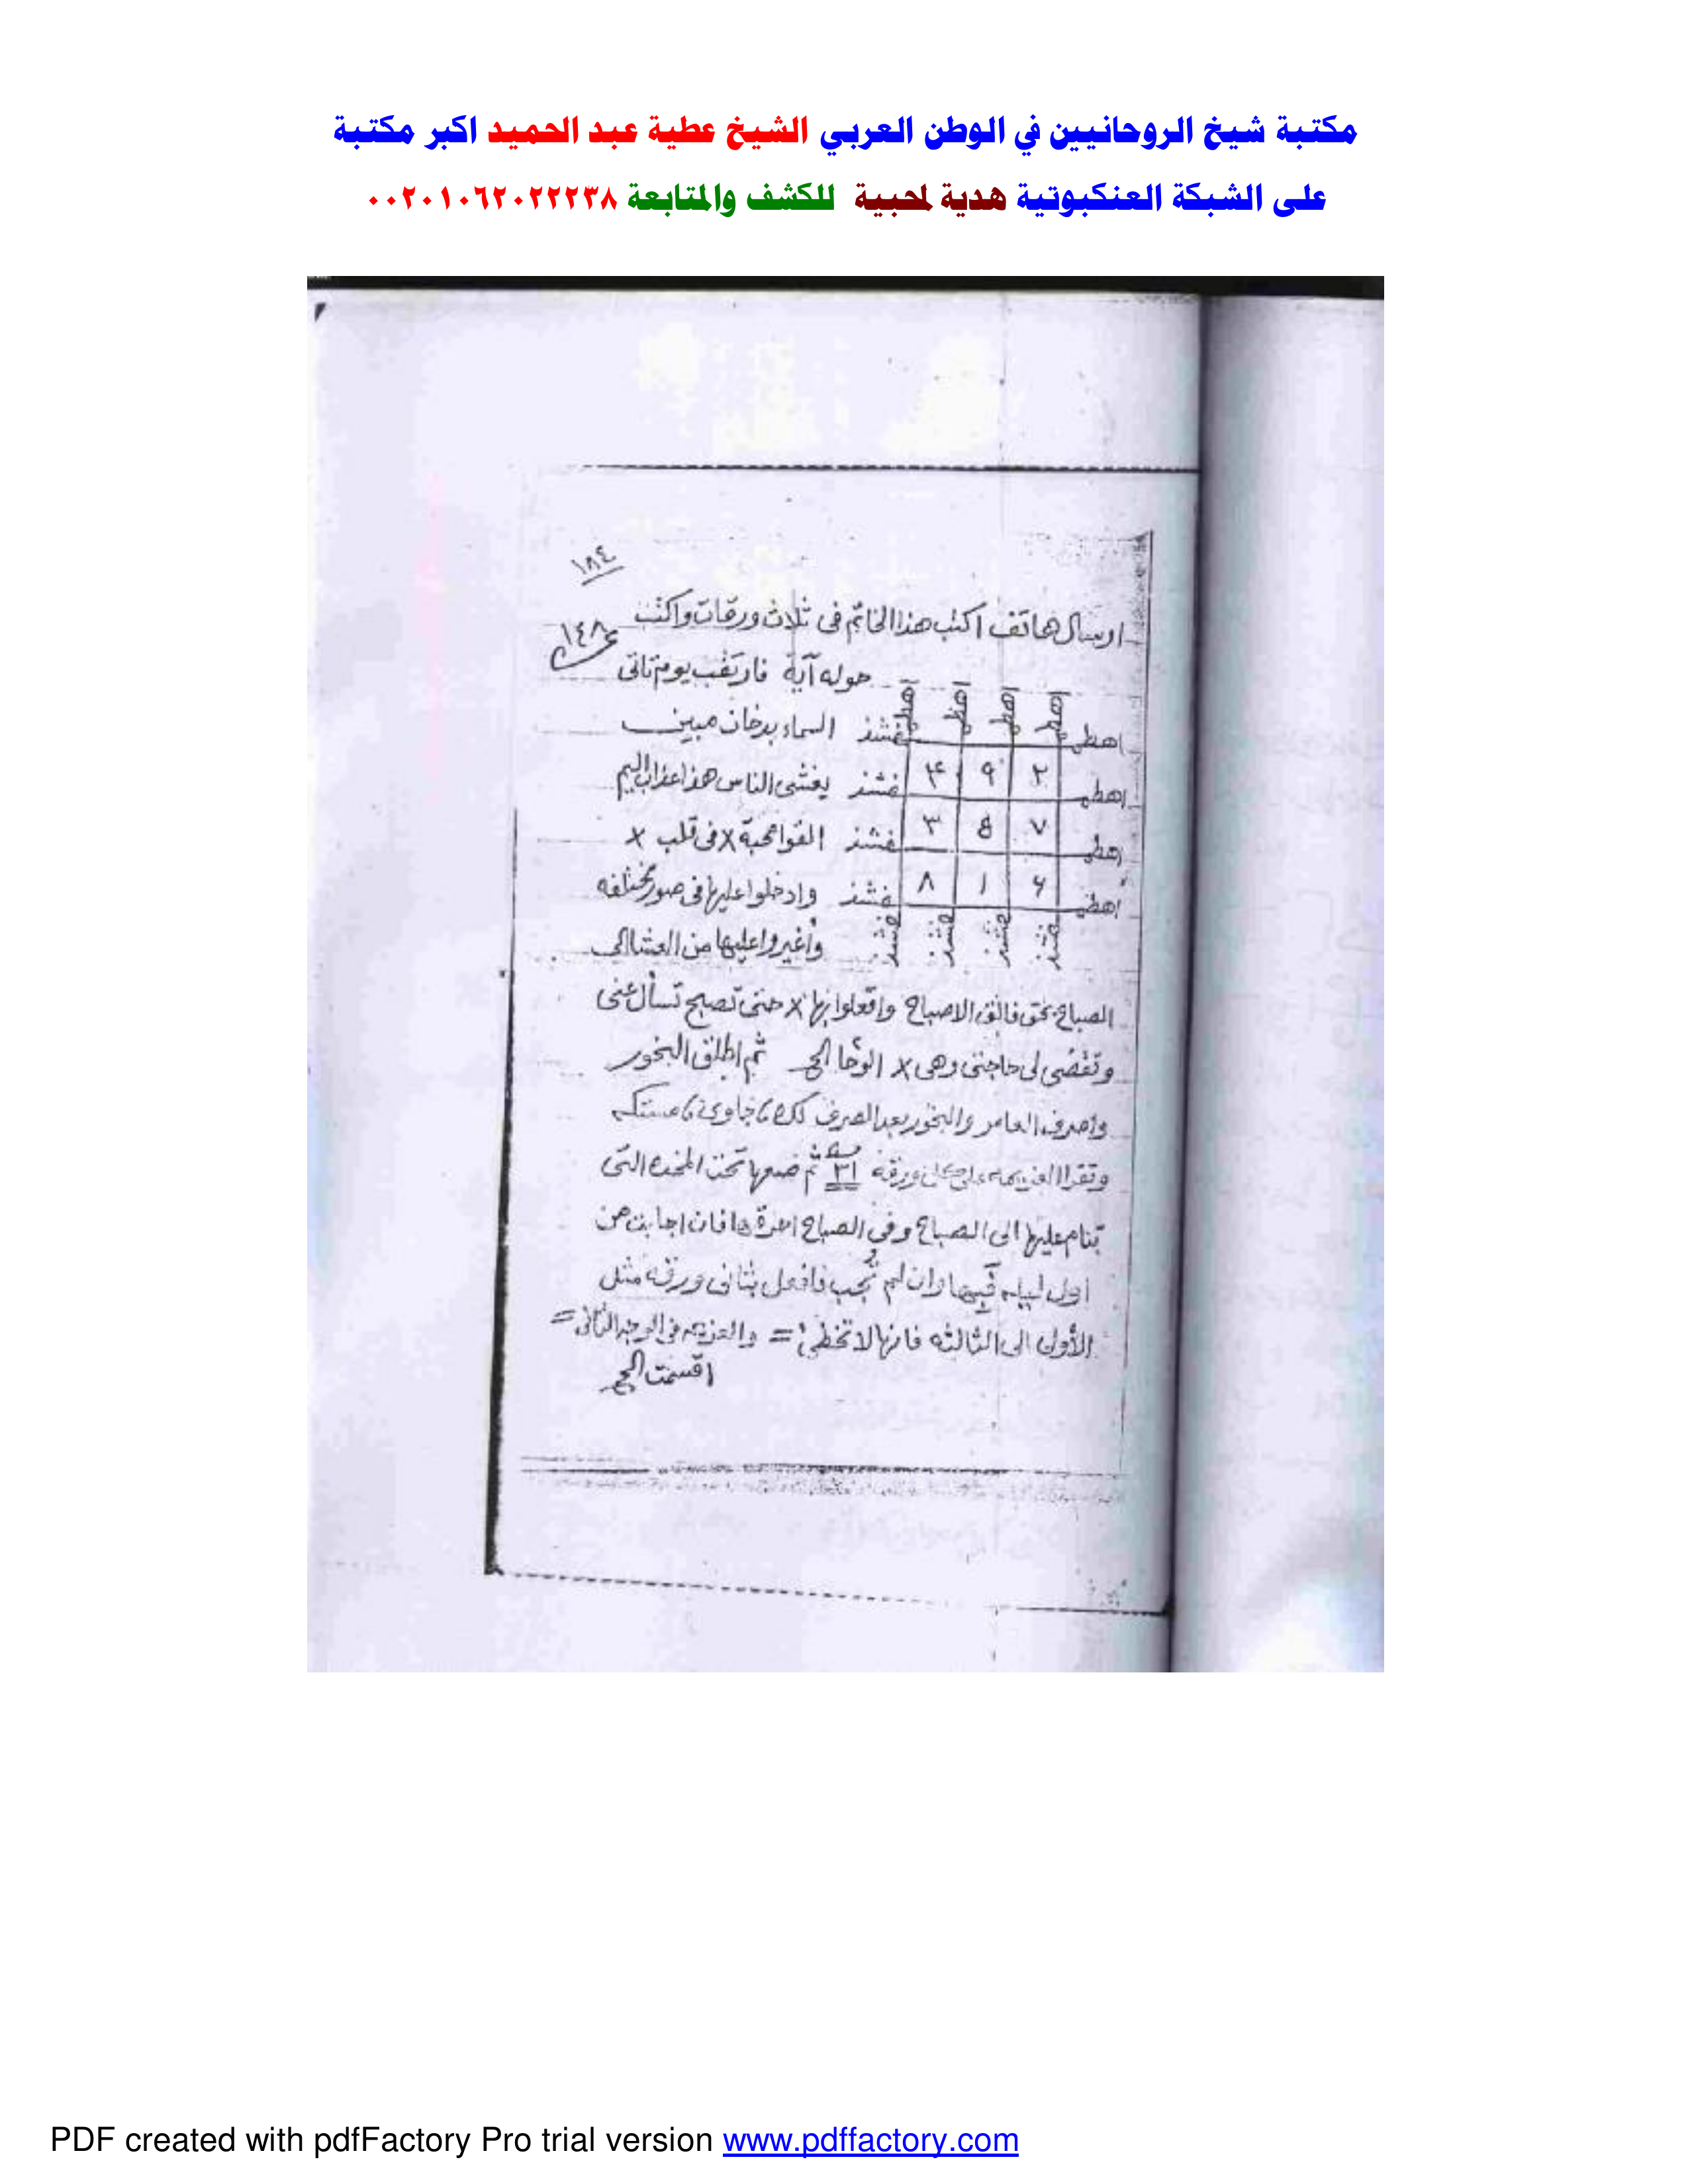 مكتبة شيخ الروحانيين في الوطن العربي الشيخ عطية عبد الحميد اكبر مكتبة
على الشبكة العنكبوتية هدية لمحبية للكشف والمتابعة ٠٠٢٠١٠٦٢٠٢٢٢٣٨
١٨٤
ارسال هاتف اكتب هذا الخاتم فى ثلاث ورقات واكتب
١٤٨
حوله آية فارتقب يوم تاتى
اهطم اهطم اهطم اهطم
اهطم فشذ السماء بدخان مبين
اهطم ٢ ٩ ٤ فشذ يغشى الناس هذا عذاب اليم
اهطم ٧ ٥ ٣ فشذ القوا محبة x فى قلب x
اهطم ٦ ١ ٨ فشذ وادخلوا عليها فى صور مختلفه
فشذ فشذ فشذ فشذ وأغيروا عليها من العشا الى
الصباح بحق فالق الاصباح وافعلوا بها x حتى تصبح تسأل عنى
وتقضى لى حاجتى وهى x الوحا الخ ثم اطلق البخور
واصرف العامر والبخور بعد الصرف لك ٦ جاوى ٦ مستكه
وتقرا العزيمه على كل ورقه ٣١ ثم ضعها تحت المخده التى
تنام عليها الى الصباح وفى الصباح احرقها فان اجابت من
اول ليله فبها وان لم تجب فافعل بثانى ورقه مثل
الأول الى الثالثه فانها لا تخطئ = والعزيمه فى الوجه الثانى =
اقسمت الخ
PDF created with pdfFactory Pro trial version www.pdffactory.com